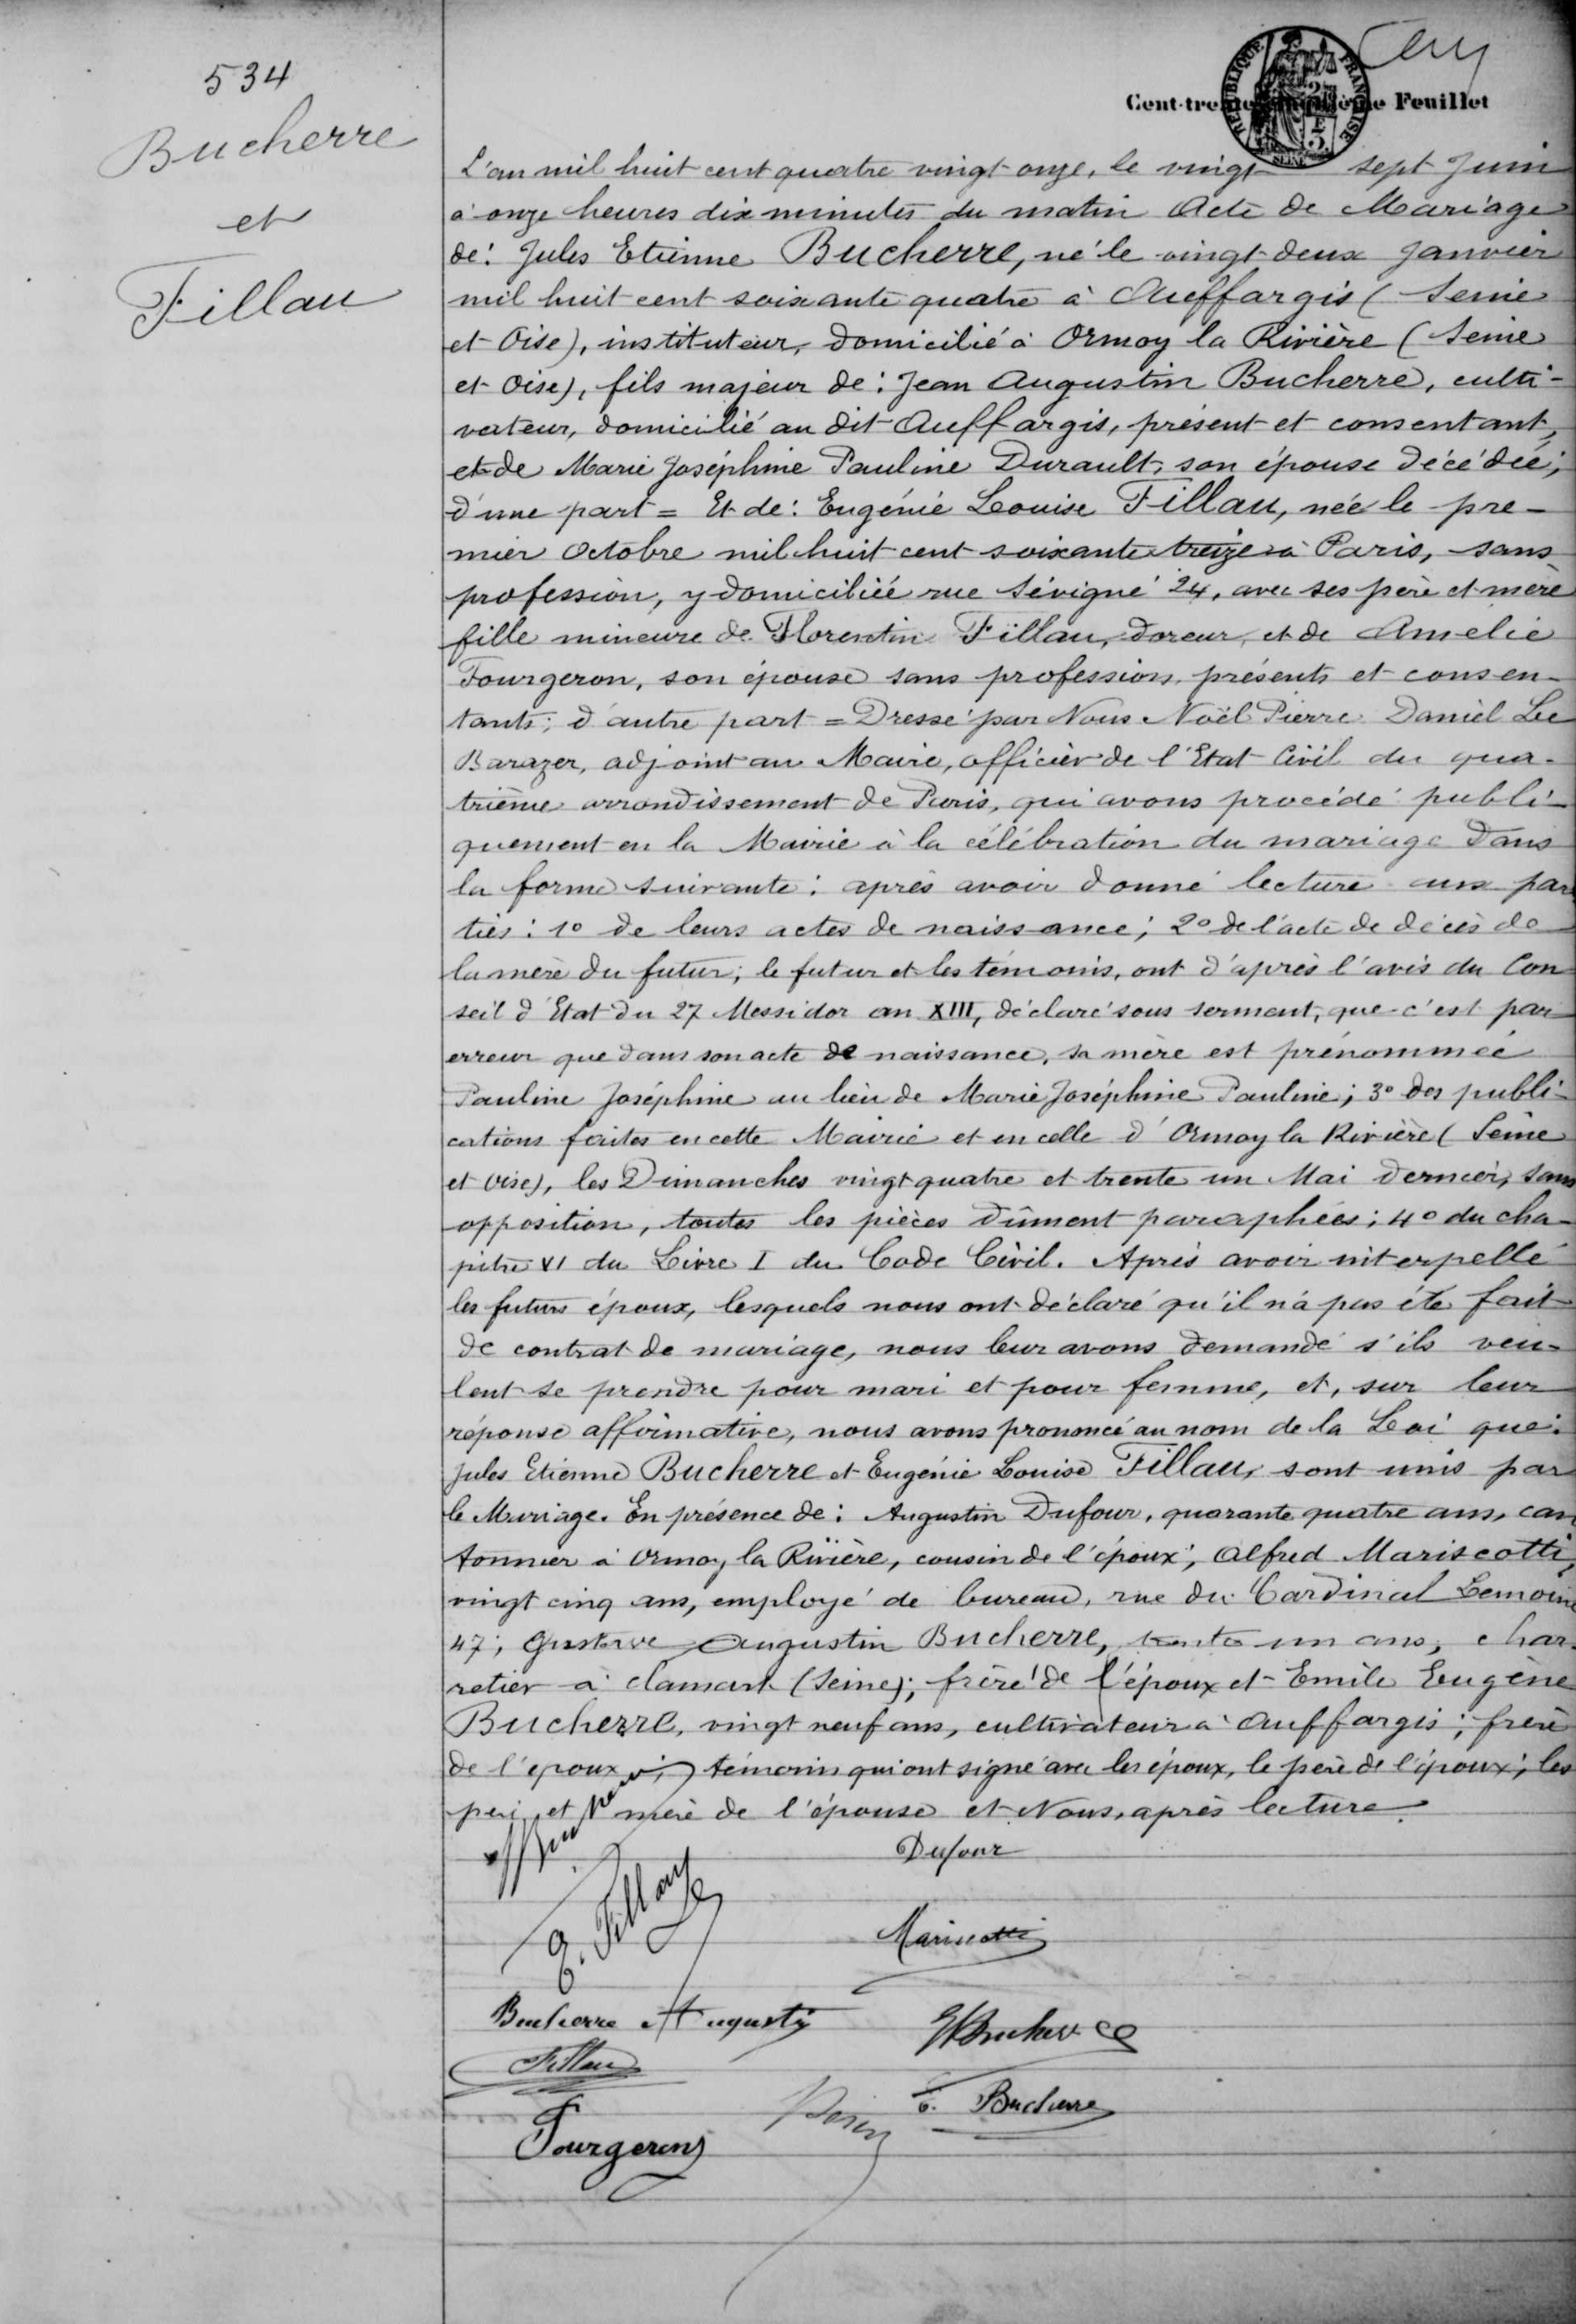 534
Bucherre
et
Fillau
Feuillet
RÉPUBLIQUE FRANÇAISE
SEINE
L'an mil huit cent quatre vingt onze, le vingt sept Juin
à onze heures dix minutes du matin Acte de Mariage
de: Jules Etienne Bucherre, né le vingt deux Janvier
mil huit cent soixante quatre à Auffargis (Seine
et Oise), instituteur, domicilié à Ormoy la Rivière (Seine
et Oise), fils majeur de: Jean Augustin Bucherre, culti-
vateur, domicilié au dit Auffargis, présent et consentant,
et de Marie Joséphine Pauline Durault, son épouse décédée;
d'une part = Et de: Eugénie Louise Fillau, née le pre-
mier Octobre mil huit cent soixante treize à Paris, sans
profession, y domiciliée rue Sévigné 24, avec ses père et mère
fille mineure de Florentin Fillau, doreur, et de Amelie
Fourgeron, son épouse sans profession, présents et consen-
tants; d'autre part = Dressé par Nous Noël Pierre Daniel Le
Barazer, adjoint au Maire, officier de l'Etat Civil du qua-
trième arrondissement de Paris, qui avons procédé publi-
quement en la Mairie à la célébration du mariage dans
la forme suivante: après avoir donné lecture aux par
ties: 1° de leurs actes de naissance; 2° de l'acte de décès de
la mère du futur; le futur et les témoins, ont d'après l'avis du Con
seil d'Etat du 27 Messidor an XIII, déclaré sous serment, que c'est par
erreur que dans son acte de naissance, sa mère est prénommée
Pauline Joséphine au lieu de Marie Joséphine Pauline; 3° des publi-
cations faites en cette Mairie et en celle d'Ormoy la Rivière (Seine
et Oise), les Dimanches vingt quatre et trente un Mai dernier, sans
opposition, toutes les pièces dûment paraphées; 4° du cha-
pitre VI du Livre I du Code Civil. Après avoir interpellé
les futurs époux, lesquels nous ont déclaré qu'il n'a pas été fait
de contrat de mariage, nous leur avons demandé s'ils veu-
lent se prendre pour mari et pour femme, et, sur leur
réponse affirmative, nous avons prononcé au nom de la Loi que:
Jules Etienne Bucherre et Eugénie Louise Fillau, sont unis par
le Mariage. En présence de: Augustin Dufour, quarante quatre ans, can
tonnier à Ormoy la Rivière, cousin de l'époux; Alfred Mariscotti,
vingt cinq ans, employé de bureau, rue du Cardinal Lemoine
47; Gustave Augustin Bucherre, trente un ans, char-
retier à Clamart (Seine); frère de l'époux et Emile Eugène
Bucherre, vingt neuf ans, cultivateur à Auffargis; frère
de l'époux; témoins qui ont signé avec les époux, le père de l'époux; les
père et mère de l'épouse et Nous, après lecture
Dufour
E. Fillau
Mariscotti
Bucherre Augustin
Bucherre
Fillau
E. Bucherre
Fourgeron